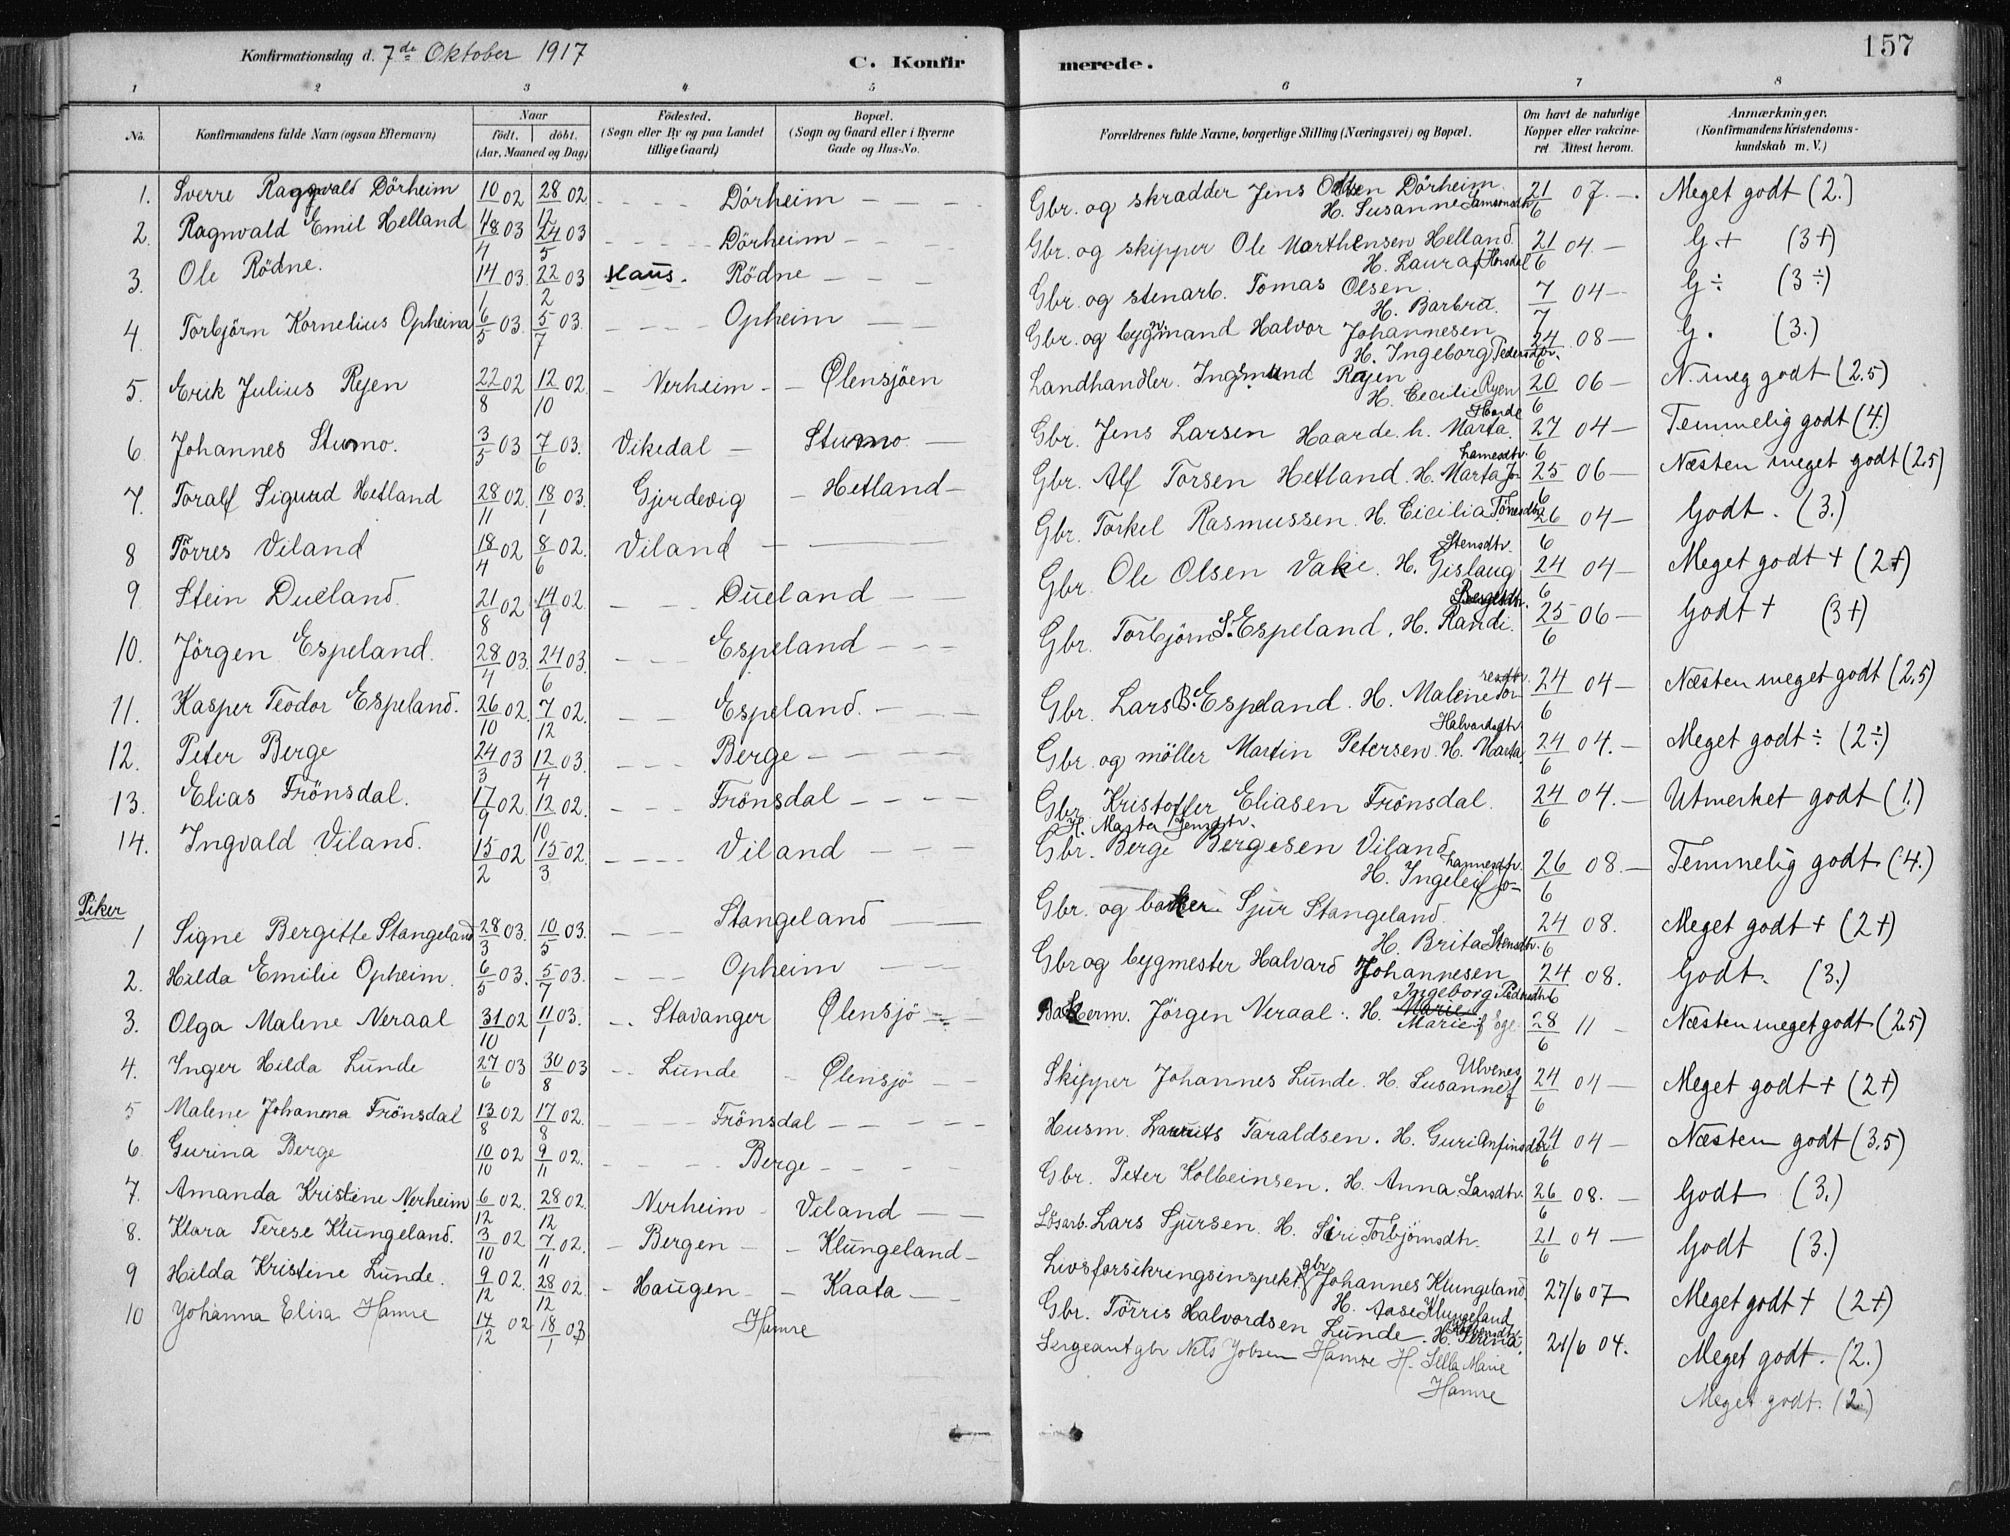 157
Konfirmationsdag d. 7de Oktober 1917
C. Konfirmerede.
1 2 3 4 5 6 7 8
No.
Konfirmandens fulde Navn (ogsaa Efternavn)
Naar
födt. döbt.
(Aar, Maaned og Dag)
Födested.
(Sogn eller By og paa Landet
tillige Gaard)
Bopæl.
(Sogn og Gaard eller i Byerne
Gade og Hus-No.
Forældrenes fulde Navne, borgerlige Stilling (Næringsvei) og Bopæl.
Om havt de naturlige
Kopper eller vakcine-
ret. Attest herom.
Anmærkninger.
(Konfirmandens Kristendoms-
kundskab m. V.)
1. Sverre Ragnvald Dörheim 10 02 28/12 02 Dörheim Gbr. og skrædder Jens Olsen Dörheim. H. Susanne Samsonsdtr 21/6 07. Meget godt (2.)
2. Ragnvald Emil Helland 18/4 03 24/5 03 Dörheim Gbr. og skipper Ole Marthensen Helland. H. Laura f. 21/6 04. G + (3+)
3. Ole Rödne. 14/1 03 22/2 03 Haus. Rödne Gbr. og stenarb. Tomas Olsen. H. Barbra. 7/7 04 G ÷ (3÷)
4 Torbjörn Kornelius Opheim 6/5 03. 5/7 03. Opheim Gbr. og bygmand Halvor Johannesen H. Ingeborg Pedersdtr. 24/6 08 G. (3.)
5. Erik Julius Ryen 22/8 02 12/10 02. Nerheim Ølensjöen Landhandler. Ingemund Ryen. H. Cecilie Ryen 20/6 06 N. meg godt (2.5)
6 Johannes Stumo. 3/5 03 7/6 03. Vikedal Stumo. Gbr. Jens Larsen Haarde. h. Marta Haarde 27/6 04 Temmelig godt (4.)
7. Toralf Sigurd Hetland 28/11 02 18/1 03. Gjerdevig Hetland Gbr. Alf Torsen Hetland. H. Marta Jo-hannesdtr. 25/6 06 Næsten meget godt (2,5)
8 Törres Viland 18/4 02 8/6 02. Viland Gbr. Torkel Rasmussen. H. Cicilia Tönesdtr 26/6 04 Godt. (3.)
9. Stein Dueland. 21/8 02 14/9 02. Dueland Gbr. Ole Olsen Vake. H. Gislaug Stensdtr. 24/6 04 Meget godt + (2+)
10. Jörgen Espeland. 28/4 03. 24/6 03. Espeland Gbr. Torbjörn S. Espeland, H. Randi. 25/6 06 Godt + (3+)
11. Kasper Teodor Espeland. 26/10 02. 7/12 02. Espeland. Gbr. Lars B. Espeland. H. Malene Tor-resdtr. 24/6 04 Næsten meget godt (2,5)
12. Peter Berge 24/3 03 12/4 03. Berge Gbr. og möller Martin Petersen. H. Marta Halvardsdtr 24/6 04. Meget godt ÷ (2÷)
13. Elias Frönsdal. 17/9 02 12/10 02. Frönsdal Gbr. Kristoffer Eliasen Frönsdal. H. Marta Jensdtr. 24/6 04. Utmerket godt (1.)
14. Ingvald Viland. 15/2 02 15/3 02. Viland Gbr. Berge Bergesen Viland H. Ingeleif Jo-hannesdtr. 26/6 08. Temmelig godt (4.)
Piker
1 Signe Bergitte Stangeland 28/3 03. 10/5 03. Stangeland Gbr. og baker Sjur Stangeland. H. Brita Stensdtr. 24/6 08. Meget godt + (2+)
2. Hilda Emilie Opheim. 6/5 03. 5/7 03. Opheim Gbr og bygmester Halvard Johannesen Ingeborg Pedersdtr 24/6 08. Godt. (3.)
3. Olga Malene Neraal 31/10 02 11/1 03. Stavanger Ølensjö Bakerm. Jörgen Neraal. H. Marie Marie f. Ege. 28/6 11 Næsten meget godt (2,5)
4. Inger Hilda Lunde 27/6 03 30/8 03 Lunde Ølensjö Skipper Johannes Lunde. H. Susanne f Ulvenes 24/6 04 Meget godt + (2+)
5 Malene Johanna Frönsdal 13/8 02 17/8 02. Frönsdal Husm. Laurits Taraldsen. H. Guri Anfinsdtr 24/6 04 Næsten godt (3,5)
6. Gurina Berge 10/10 02 9/11 02. Berge Gbr. Peter Kolbeinsen. H. Anna Larsdtr. 26/6 08. Godt (3.)
7. Amanda Kristine Nerheim 6/12 02. 28/12 02. Nerheim Viland Lösarb. Lars Sjursen. H. Siri Torbjörnsdtr. 21/6 04 Godt (3.)
8. Klara Terese Klungeland. 3/10 02 7/11 02. Bergen Klungeland Livsforsikringsinspekt. gbr. Johannes Klungeland H. Aase Klungeland 27/6 07 Meget godt + (2+)
9 Hilda Kristine Lunde. 9/12 02. 28/12 02. Haugen Kaata Gbr. Törris Halvordsen Lunde. H. Serina. 21/6 04. Meget godt. (2.)
10 Johanna Elisa Hamre 14/12 02 18/1 03 Hamre Sergeant gbr Nils Jobsen Hamre H. Sella Marie Hamre Meget godt. (2.)